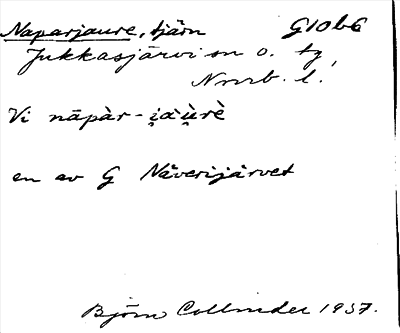 Naparjaure, tjärn G10b6
Jukkasjärvi sn o. tg,
Nrrb. l.
Vi nāpàr-i̯àu̯rè
en av G Näverijärvet
Björn Collinder 1937.